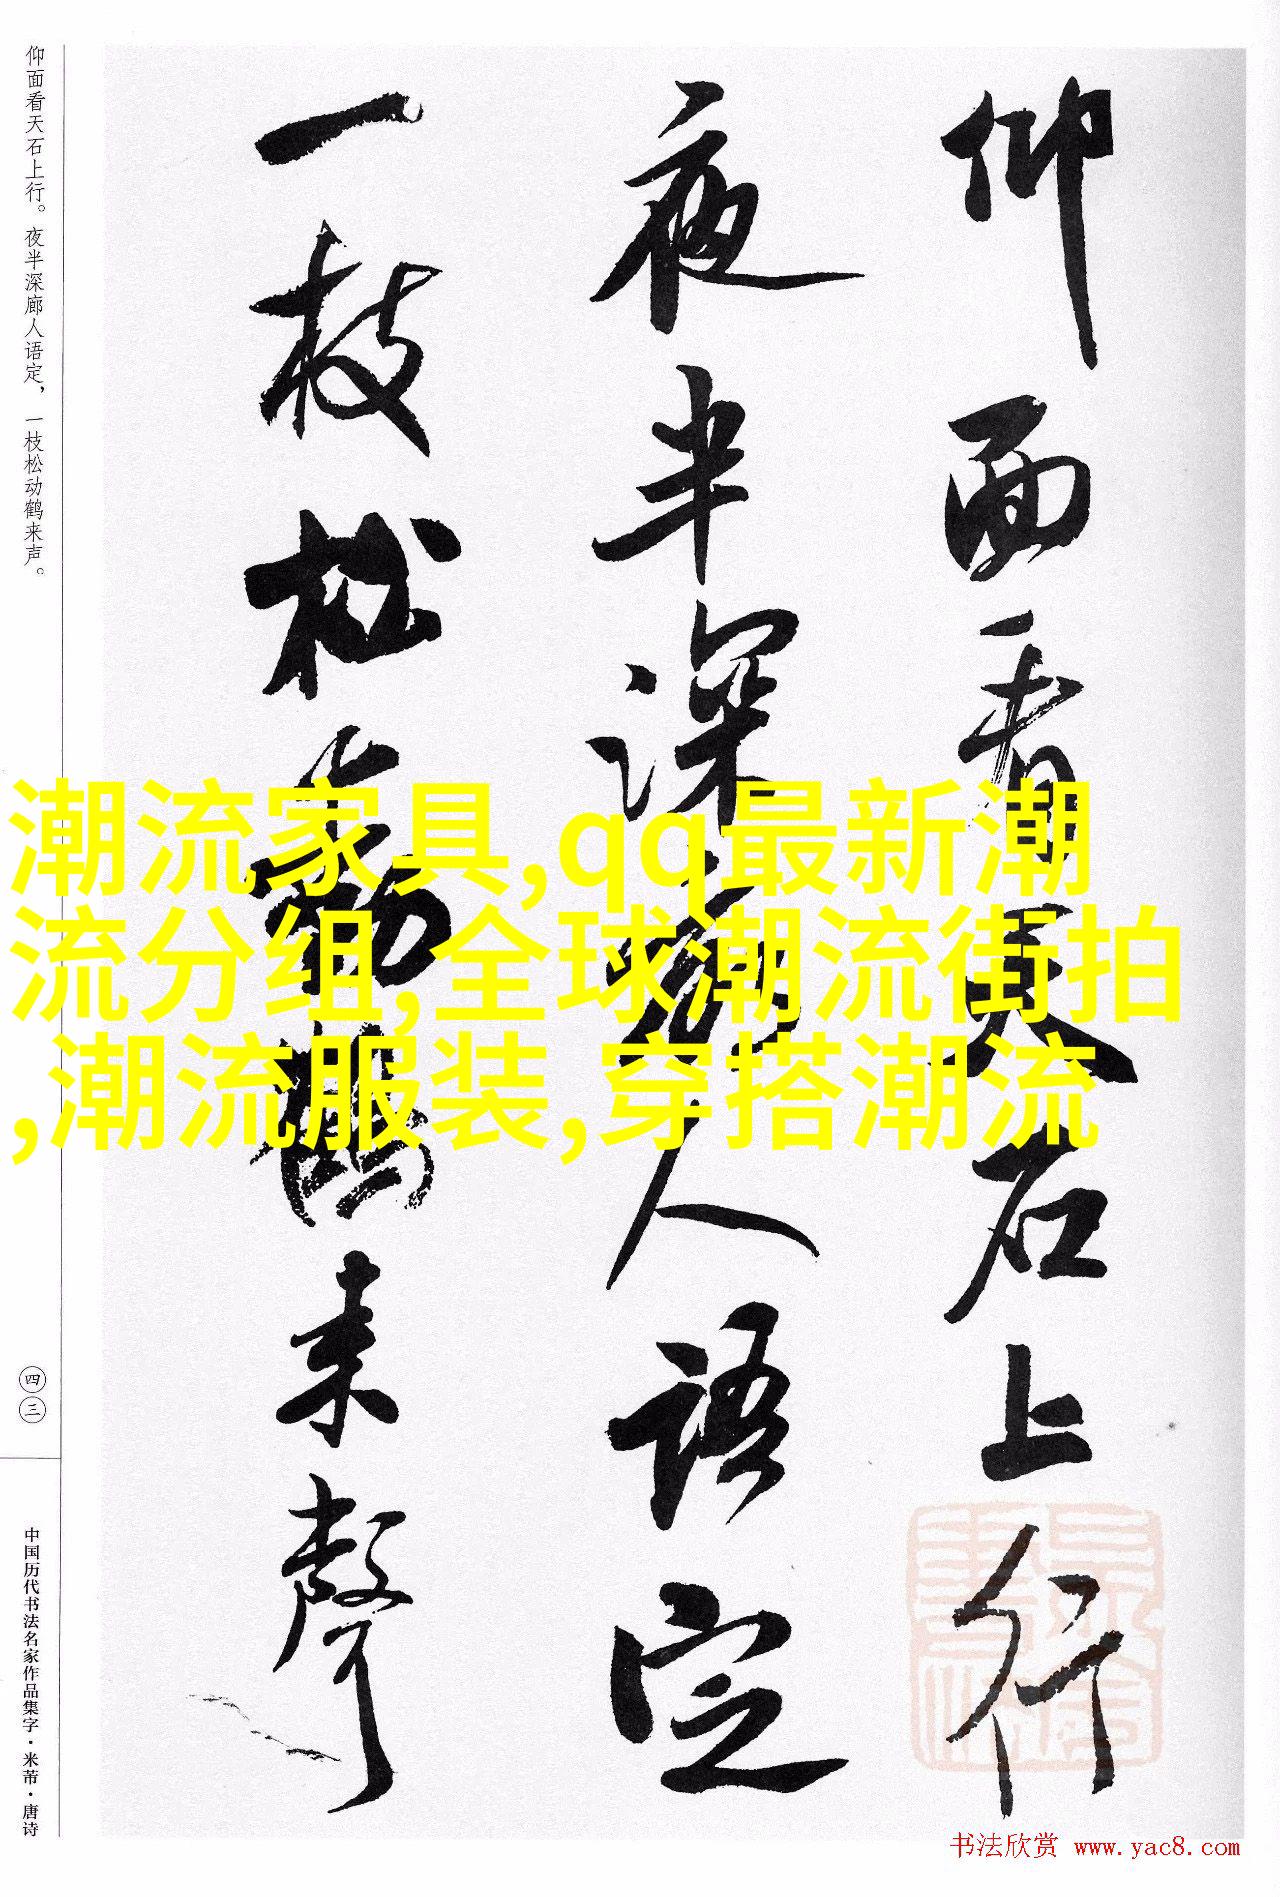 仰面看天石上行
夜半深廊人语定
一枝松動鶴来聲
仰面看天石上行。夜半深廊人语定，一枝松动鹤来声。
潮流家具,qq最新潮
流分组,全球潮流街拍
,潮流服装,穿搭潮流
四三
中国历代书法名家作品集字·米芾·唐诗
书法欣赏 www.yac8.com